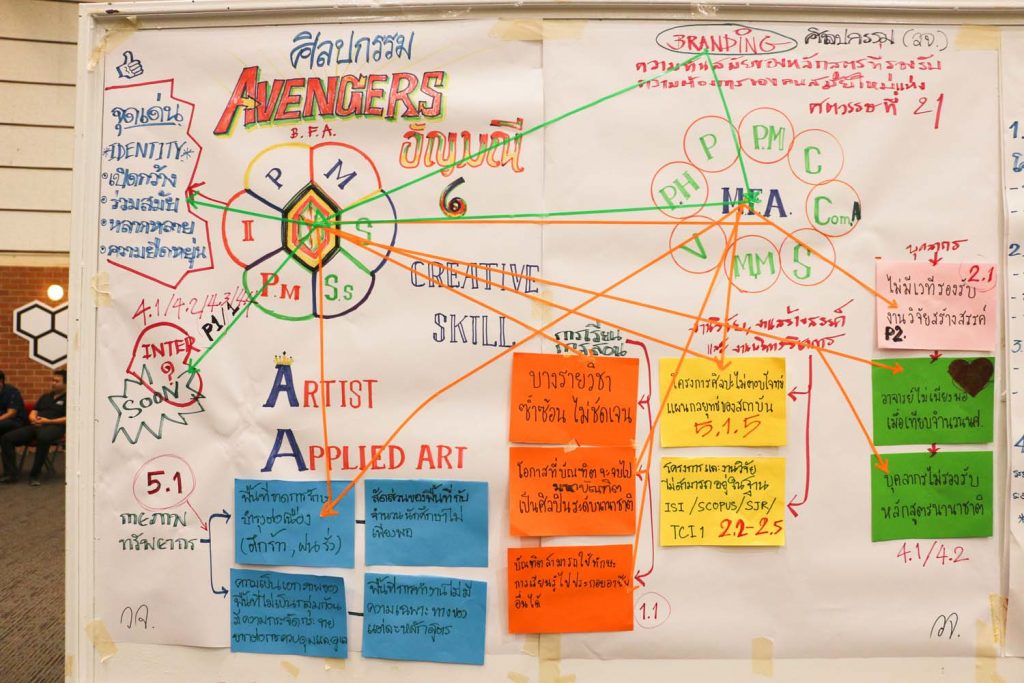 ศิลปกรรม
AVENGERS
B.F.A.
อัญมณี
6
จุดเด่น
*IDENTITY*
• เปิดกว้าง
• ร่วมสมัย
• หลากหลาย
• ความยืดหยุ่น
P
M
I
S
P.M
S.s
4.1/4.2/4.3/4.4
P1/1
INTER
SOON
CREATIVE
SKILL
ARTIST
APPLIED ART
BRANDING
ศิลปกรรม (สจ.)
ความทันสมัยของหลักสูตรที่รองรับ
ความต้องการของคนสมัยใหม่แห่ง
ศตวรรษที่ 21
P
P.M
C
P.H
M.F.A.
Com.A
V
M.M
S
5.1
กายภาพ
ทรัพยากร
พื้นที่ขาดการจ้าง
บำรุงต่อเนื่อง
(ตึกร้าว, ฝนรั่ว)
สัดส่วนของพื้นที่กับ
จำนวนนักศึกษาไม่
เพียงพอ
ความเป็นเอกภาพของ
พื้นที่ไม่เป็นกลุ่มก้อน
มีความกระจัดกระจาย
ยากต่อการควบคุมและดูแล
พื้นที่การทำงานไม่มี
ความเฉพาะทางของ
แต่ละหลักสูตร
การเรียน
การสอน
บางรายวิชา
ซ้ำซ้อน ไม่ชัดเจน
โอกาสที่บัณฑิตจะจบไป
เป็นศิลปินระดับนานาชาติ
บัณฑิตสามารถใช้ทักษะ
การเรียนรู้ไปประกอบอาชีพ
อื่นได้
1.1
งานวิจัย, งานสร้างสรรค์
และ งานบริการวิชาการ
โครงการศิลปะไม่ตอบโจทย์
แผนกลยุทธ์ของสถาบัน
5.1.5
โครงการและงานวิจัย
ไม่สามารถอยู่ในฐาน
ISI/SCOPUS/SJR/
TCI1 2.2-2.5
บุคลากร
2.1
ไม่มีเวทีรองรับ
งานวิจัยสร้างสรรค์
P2.
อาจารย์ไม่เพียงพอ
เมื่อเทียบจำนวนนศ.
บุคลากรไม่รองรับ
หลักสูตรนานาชาติ
4.1/4.2